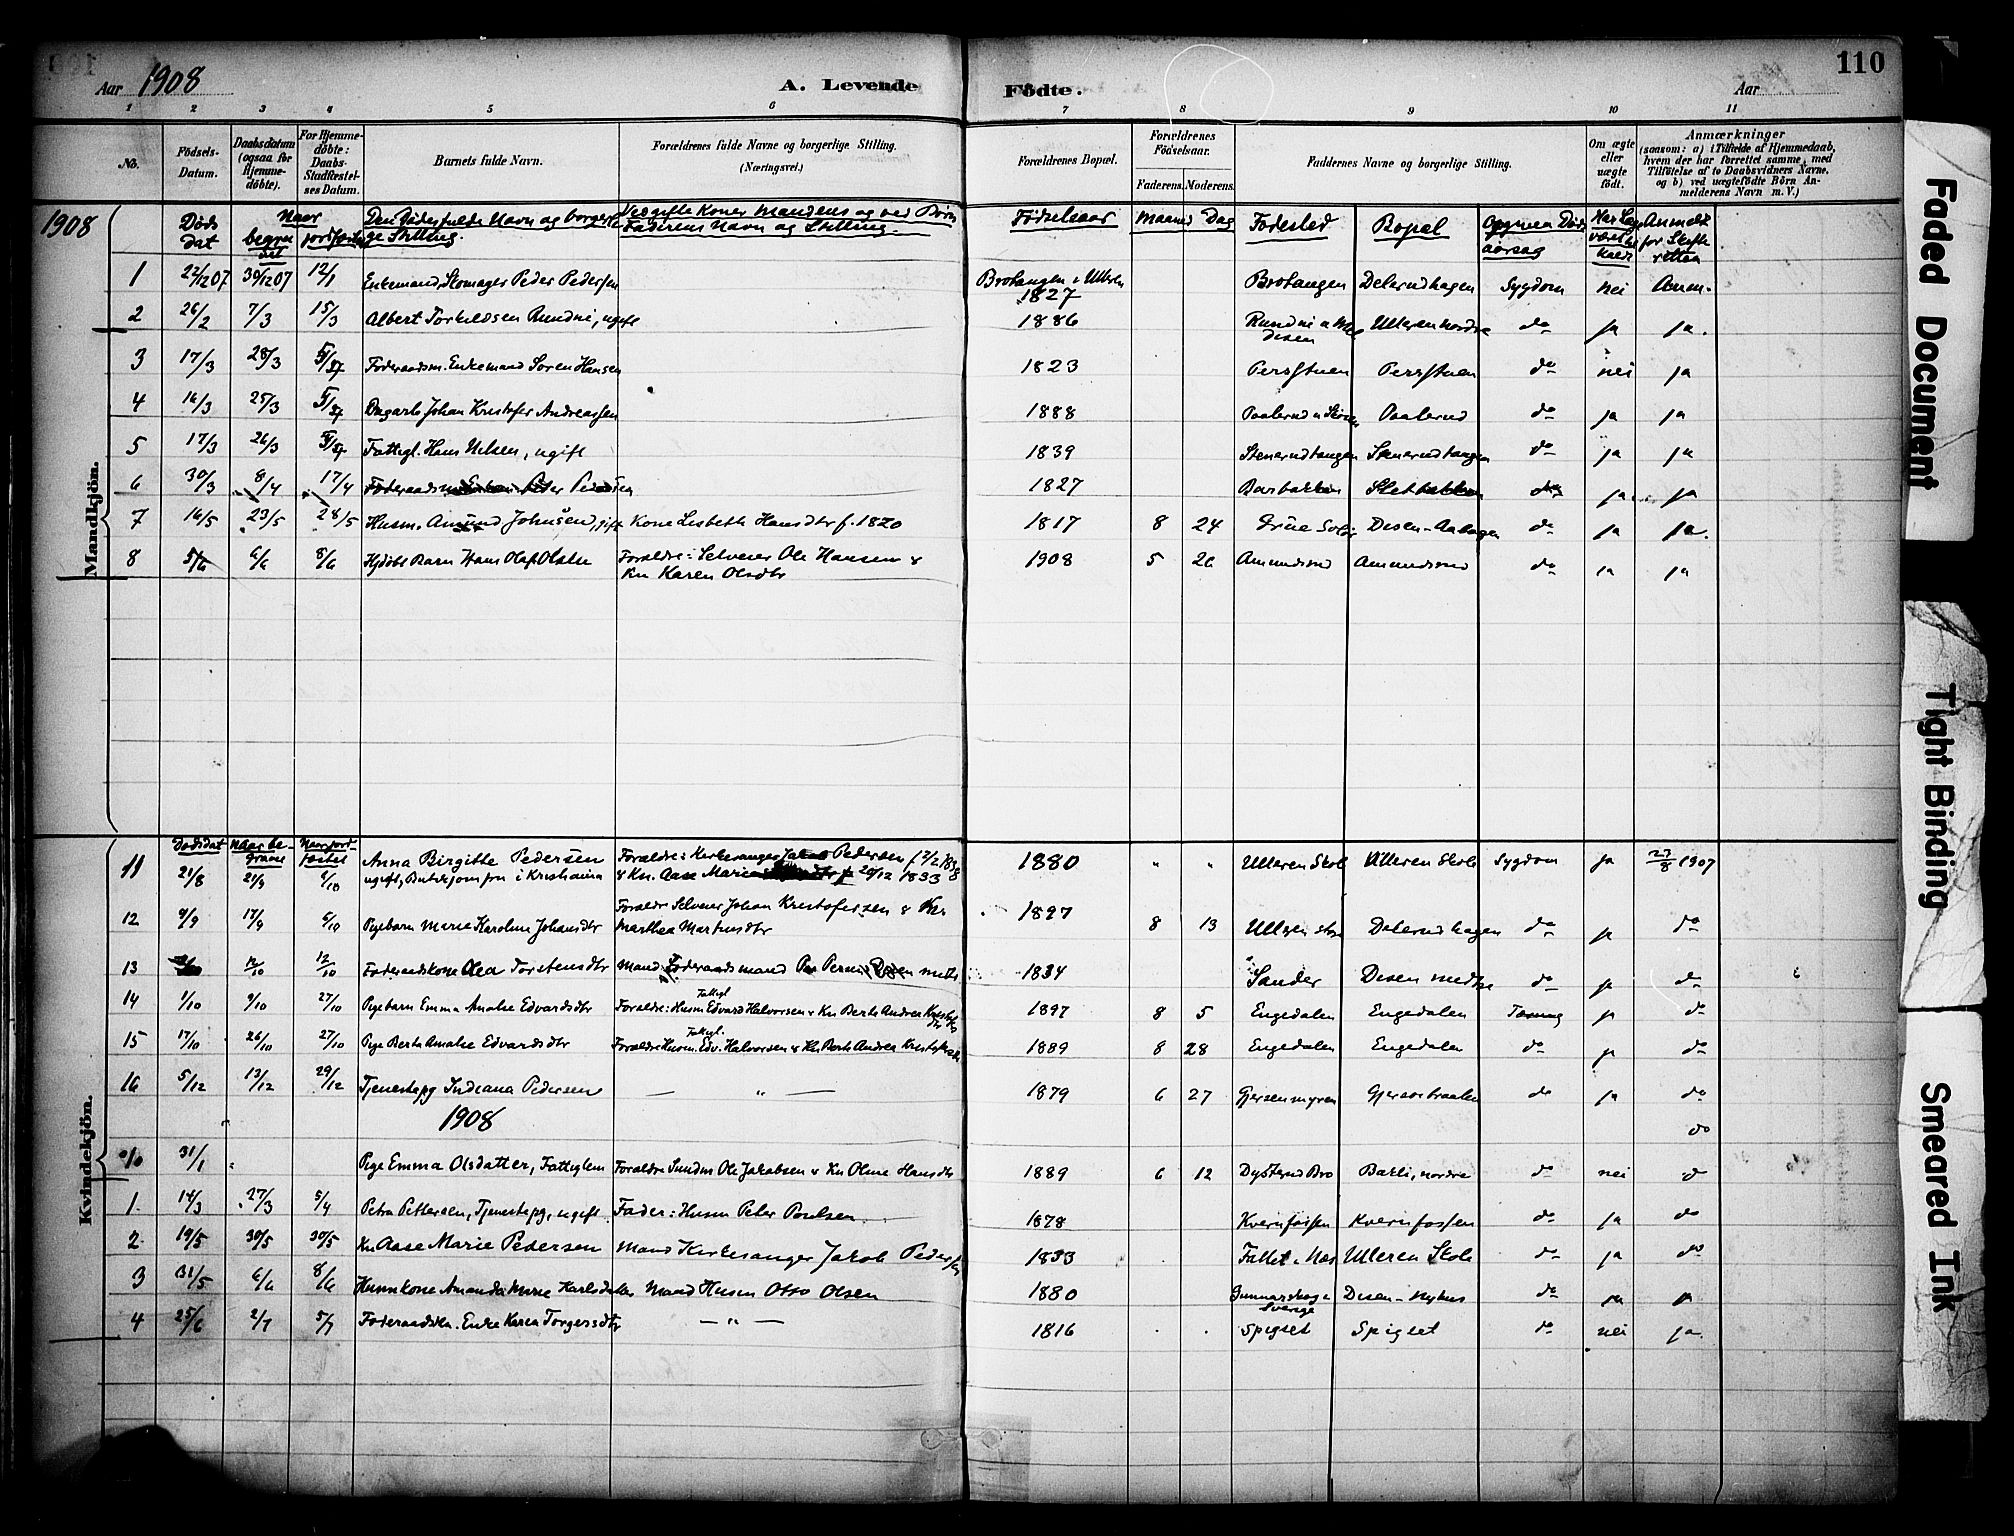 Aar 1908
A. Levende
Födte.
Aar
110
1 2 3 4 5 6 7 8 9 10 11
No.
Födsels-Datum.
Daabsdatum (ogsaa för Hjemme-döbte).
For Hjemme-döbte: Daabs-Stadfæstel-ses Datum.
Barnets fulde Navn.
Forældrenes fulde Navne og borgerlige Stilling.
(Næringsvei.)
Forældrenes Bopæl.
Forældrenes Födselsaar.
Faderens. Moderens.
Faddernes Navne og borgerlige Stilling.
Om ægte eller uægte födt.
Anmærkninger
(saasom: a) i Tilfælde af Hjemmedaab, hvem der har forrettet samme, med Tilföielse af to Daabsvidners Navne, og b) ved uægtefödte Börn An-melderens Navn m. V.)
1908
Døds dat
Naar begra vet
jordfæstet
Den Dødes fulde Navn og borgerlige Stilling.
Ved gifte Koner Mandens og ved Børn Faderens Navn og Stilling.
Fødselsaar Maaned Dag Fødested Bopæl
Mandkjön.
1 22/12 07 30/12 07 12/1 Enkemand, Skomager Peder Pedersen Brotangen i Ulleren 1827 Brotangen Delerudhagen Sygdom nei Anm.
2 26/2 7/3 15/3 Albert Torkildsen Rundni, ugift 1886 Ulleren nordre do ja ja.
3 17/3 28/3 Føderaadsm. Enkemand Søren Hansen 1823 Persstuen Persstuen do nei ja
4 16/3 25/3 Johan Kristofer Andreassen 1888 Paalerud do ja ja
5 17/3 26/3 Fattigl. Hans Nilsen, ugift 1839 Stenerudtangen Stenerudtangen do ja ja
6 30/3 8/4 17/4 Føderaadsm. Peder Pedersen 1827 Barbakken do ja ja
7 16/5 23/5 28/5 Husm. Amund Johnsen, gift Kone Lisbeth Hansdtr f. 1820 1817 8 24 Grue Solør Desen- do ja ja.
8 5/6 6/6 8/6 Hjdøbt Barn Hans Olaf Olsen Forældre: Selveier Ole Hansen &
Kn Karen Olsdtr 1908 5 26 Amundsrud Amundsrud do ja ja
Kvindekjön.
Dødsdat Naar be-gravet Naar jord-fæstet
11 21/8 21/9 6/10 Anna Birgitte Pedersen
ugift, Butikjomfru i Kristiania Forældre: Kirkesanger Jakob Pedersen
& Kn. Aase Marie 20/12 1833 1880 " " Ulleren Skole Ulleren Skole Sygdom ja 27/8 1907
12 9/9 17/9 6/10 Pigebarn Marie Karoline Johansdtr Forældre Selveier Johan Kristofersen & Kn
Marthea Martinsdtr 1897 8 13 Ulleren Delerudhagen do ja do
13 12/10 12/10 Føderaadskone Olea Torstensdtr Mand Føderaadsmand 1834 Sander Desen do ja do
14 1/10 9/10 27/10 Pigebarn Emma Amalie Edvardsdtr Forældre: Husm Fattigl Edvard Halvorsen & Kn Berte Andrea 1897 8 5 Engedalen Engedalen Tæring ja do
15 17/10 26/10 27/10 Pige Berte Amalie Edvardsdtr Forældre Husm. Fattigl. Edv. Halvorsen & Kn Berte Andrea 1889 8 28 Engedalen Engedalen do ja do
16 5/12 13/12 29/12 Tjenestepg Indiana Pedersen — " — 1879 6 27 Gjersenmyren do ja do
1908
do
0/0 31/1 Pige Emma Olsdatter, Fattiglem Forældre Ole Jakobsen & Kn Oline Hansdtr 1889 6 12 Dysterud Bro Barli, nordre do nei
1 14/3 27/3 5/4 Petra Pettersen, Tjenestepg, ugift. Fader: Husm Peter Poulsen 1878 Kvernfossen Kvernfossen do ja do
2 19/5 30/5 30/5 Kn Aase Marie Pedersen Mand Kirkesanger Jakob Pedersen 1833 Fallet i Næs Ulleren Skole do ja do
3 31/5 6/6 8/6 Husmkone Amanda Marie Karlsdatter Mand Husm Otto Olsen 1880 Gunnarskog i Sverige Desen-Nyhus do ja ja
4 25/6 2/7 5/7 Føderaadskn. Enke Karen Torgersdtr — " — 1816 Spigset Spigset do nei ja.
Faded Document
Tight Binding
Smeared Ink